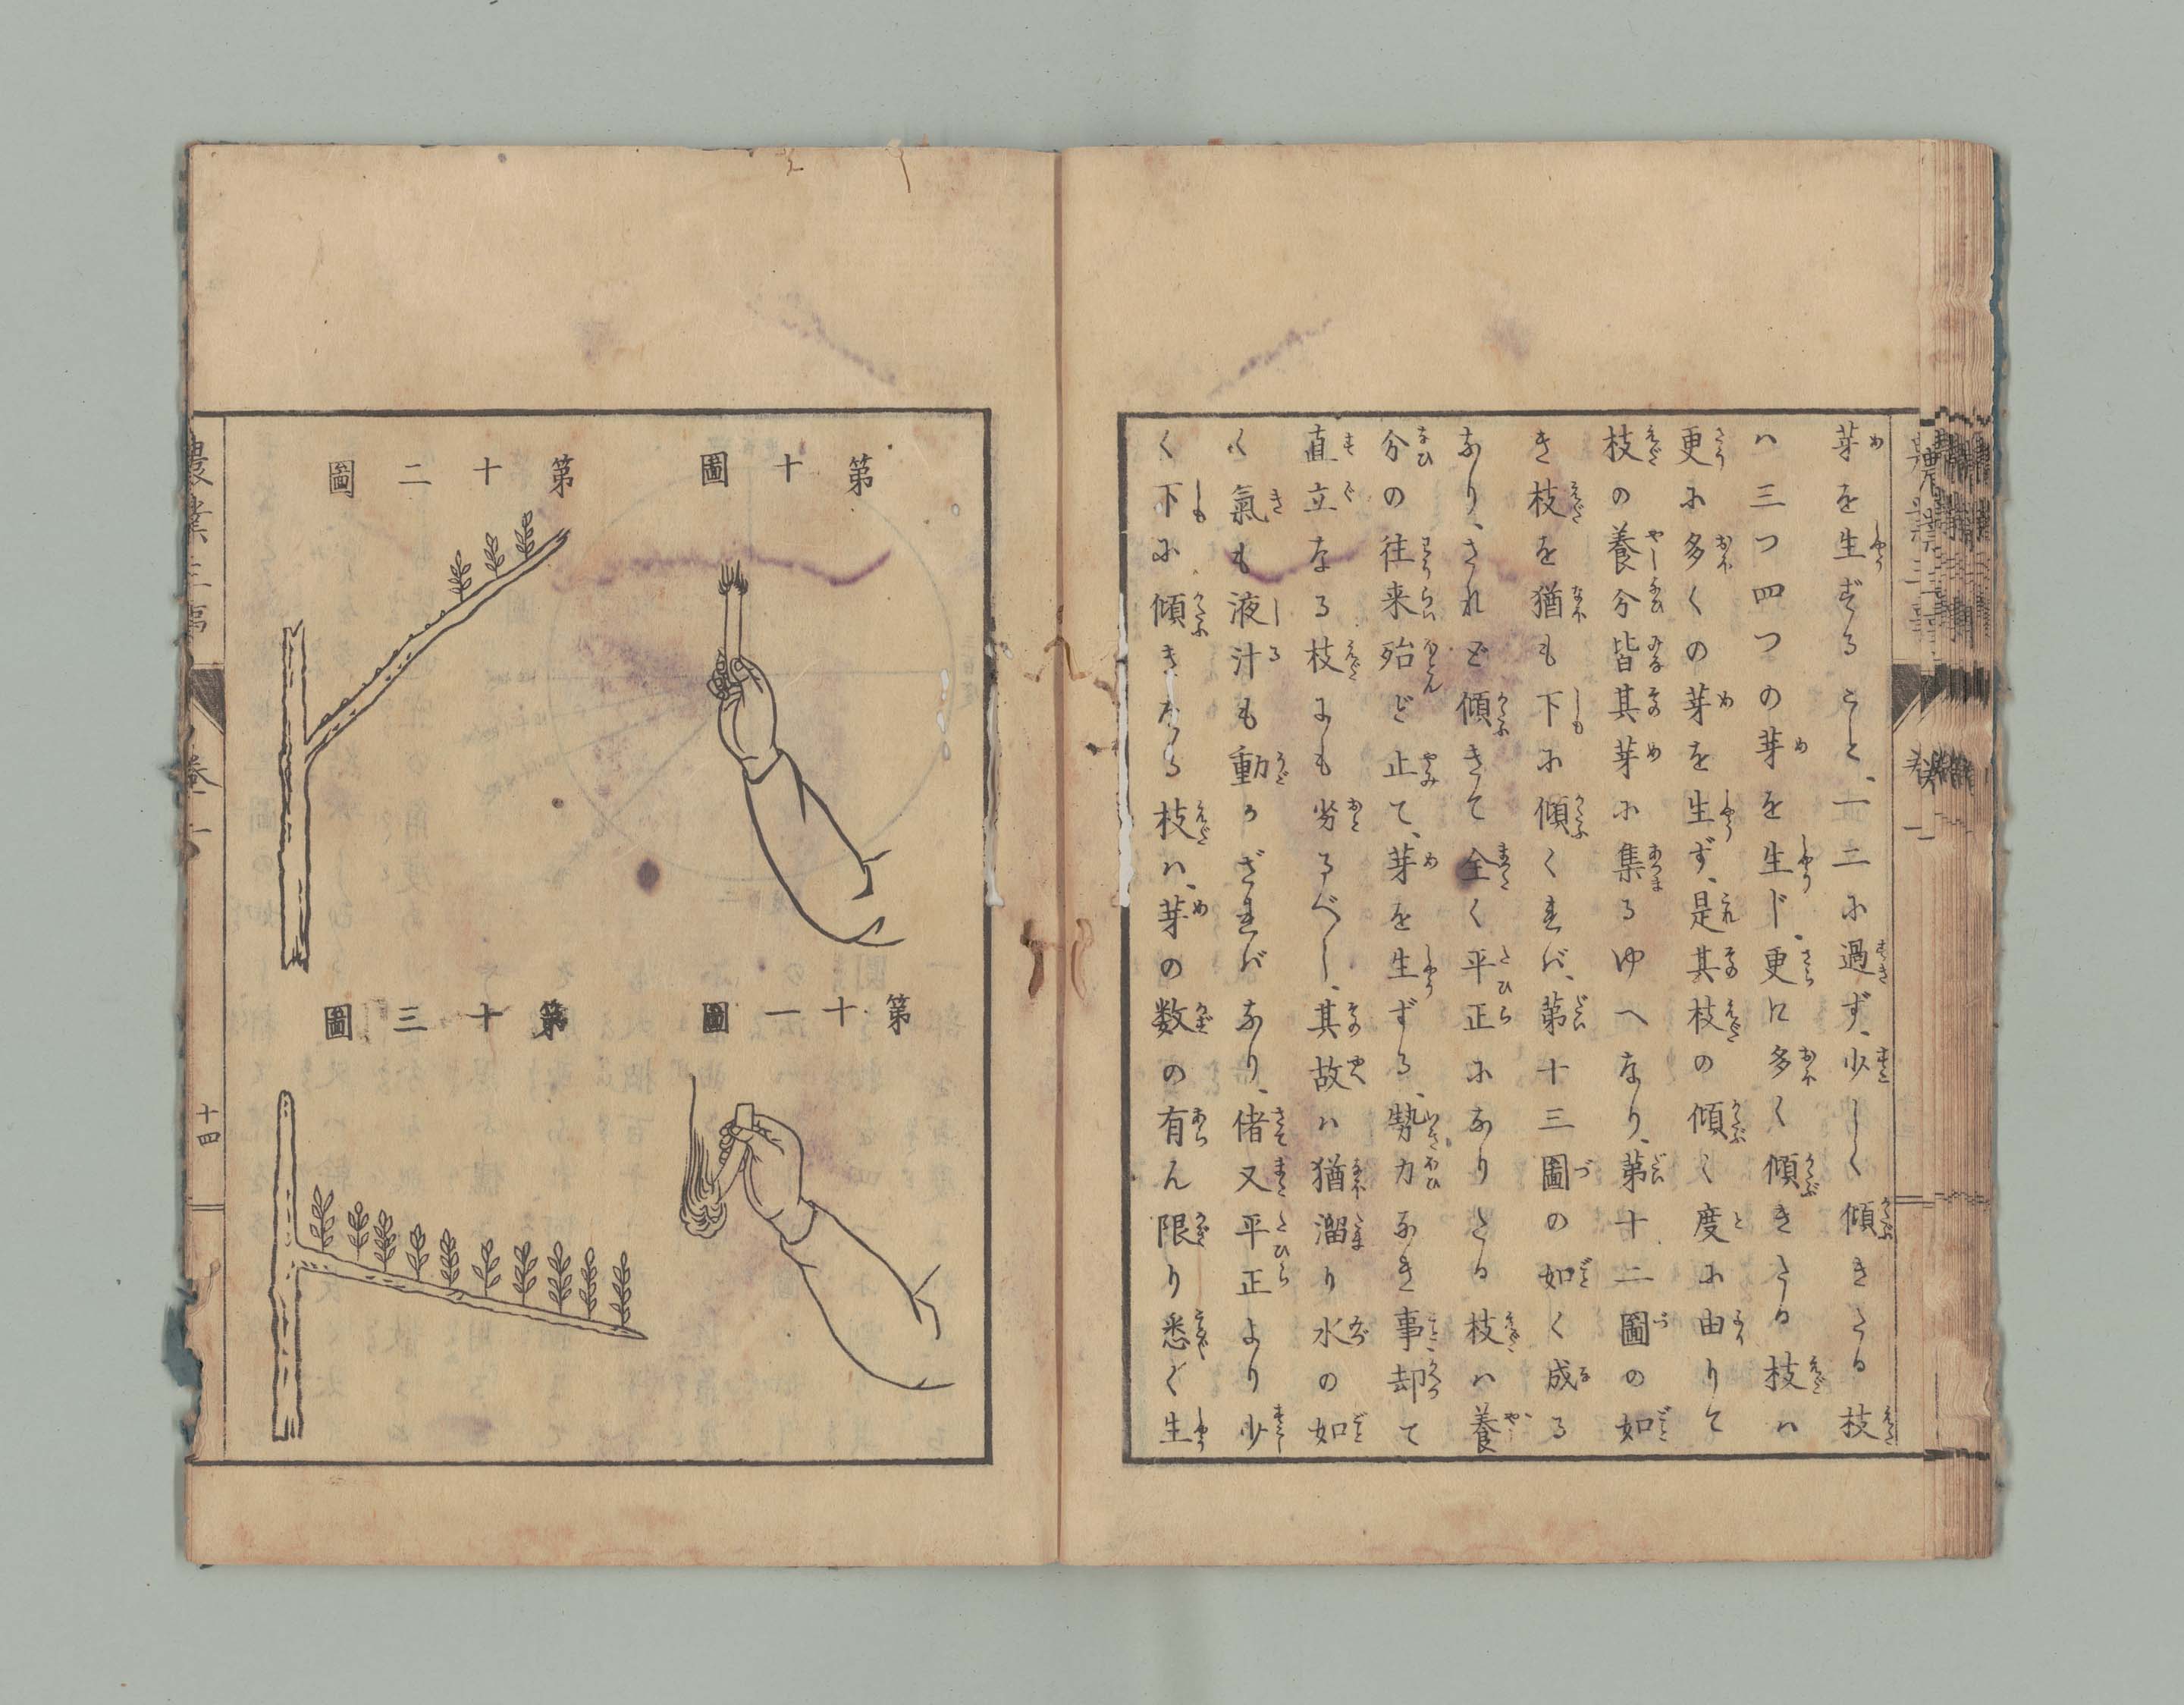 芽を生ずること、一二に過ず、少しく傾きたる枝
ハ三つ四つの芽を生じ、更に多く傾きたる枝ハ
更に多くの芽を生ず、是其枝の傾く度に由りて
枝の養分皆其芽に集るゆへなり、第十二圖の如
き枝を猶も下に傾くれバ、第十三圖の如く成る
なり、されど傾きて全く平正になりたる枝ハ養
分の往来殆ど止て、芽を生ずる勢力なき事却て
直立なる枝にも劣るべし、其故ハ猶溜り水の如
く氣も液汁も動かざれバなり、偖又平正より少
く下に傾きたる枝ハ、芽の数の有ん限り悉く生
第十圖
第十一圖
第十二圖
第十三圖
農業三事
十四